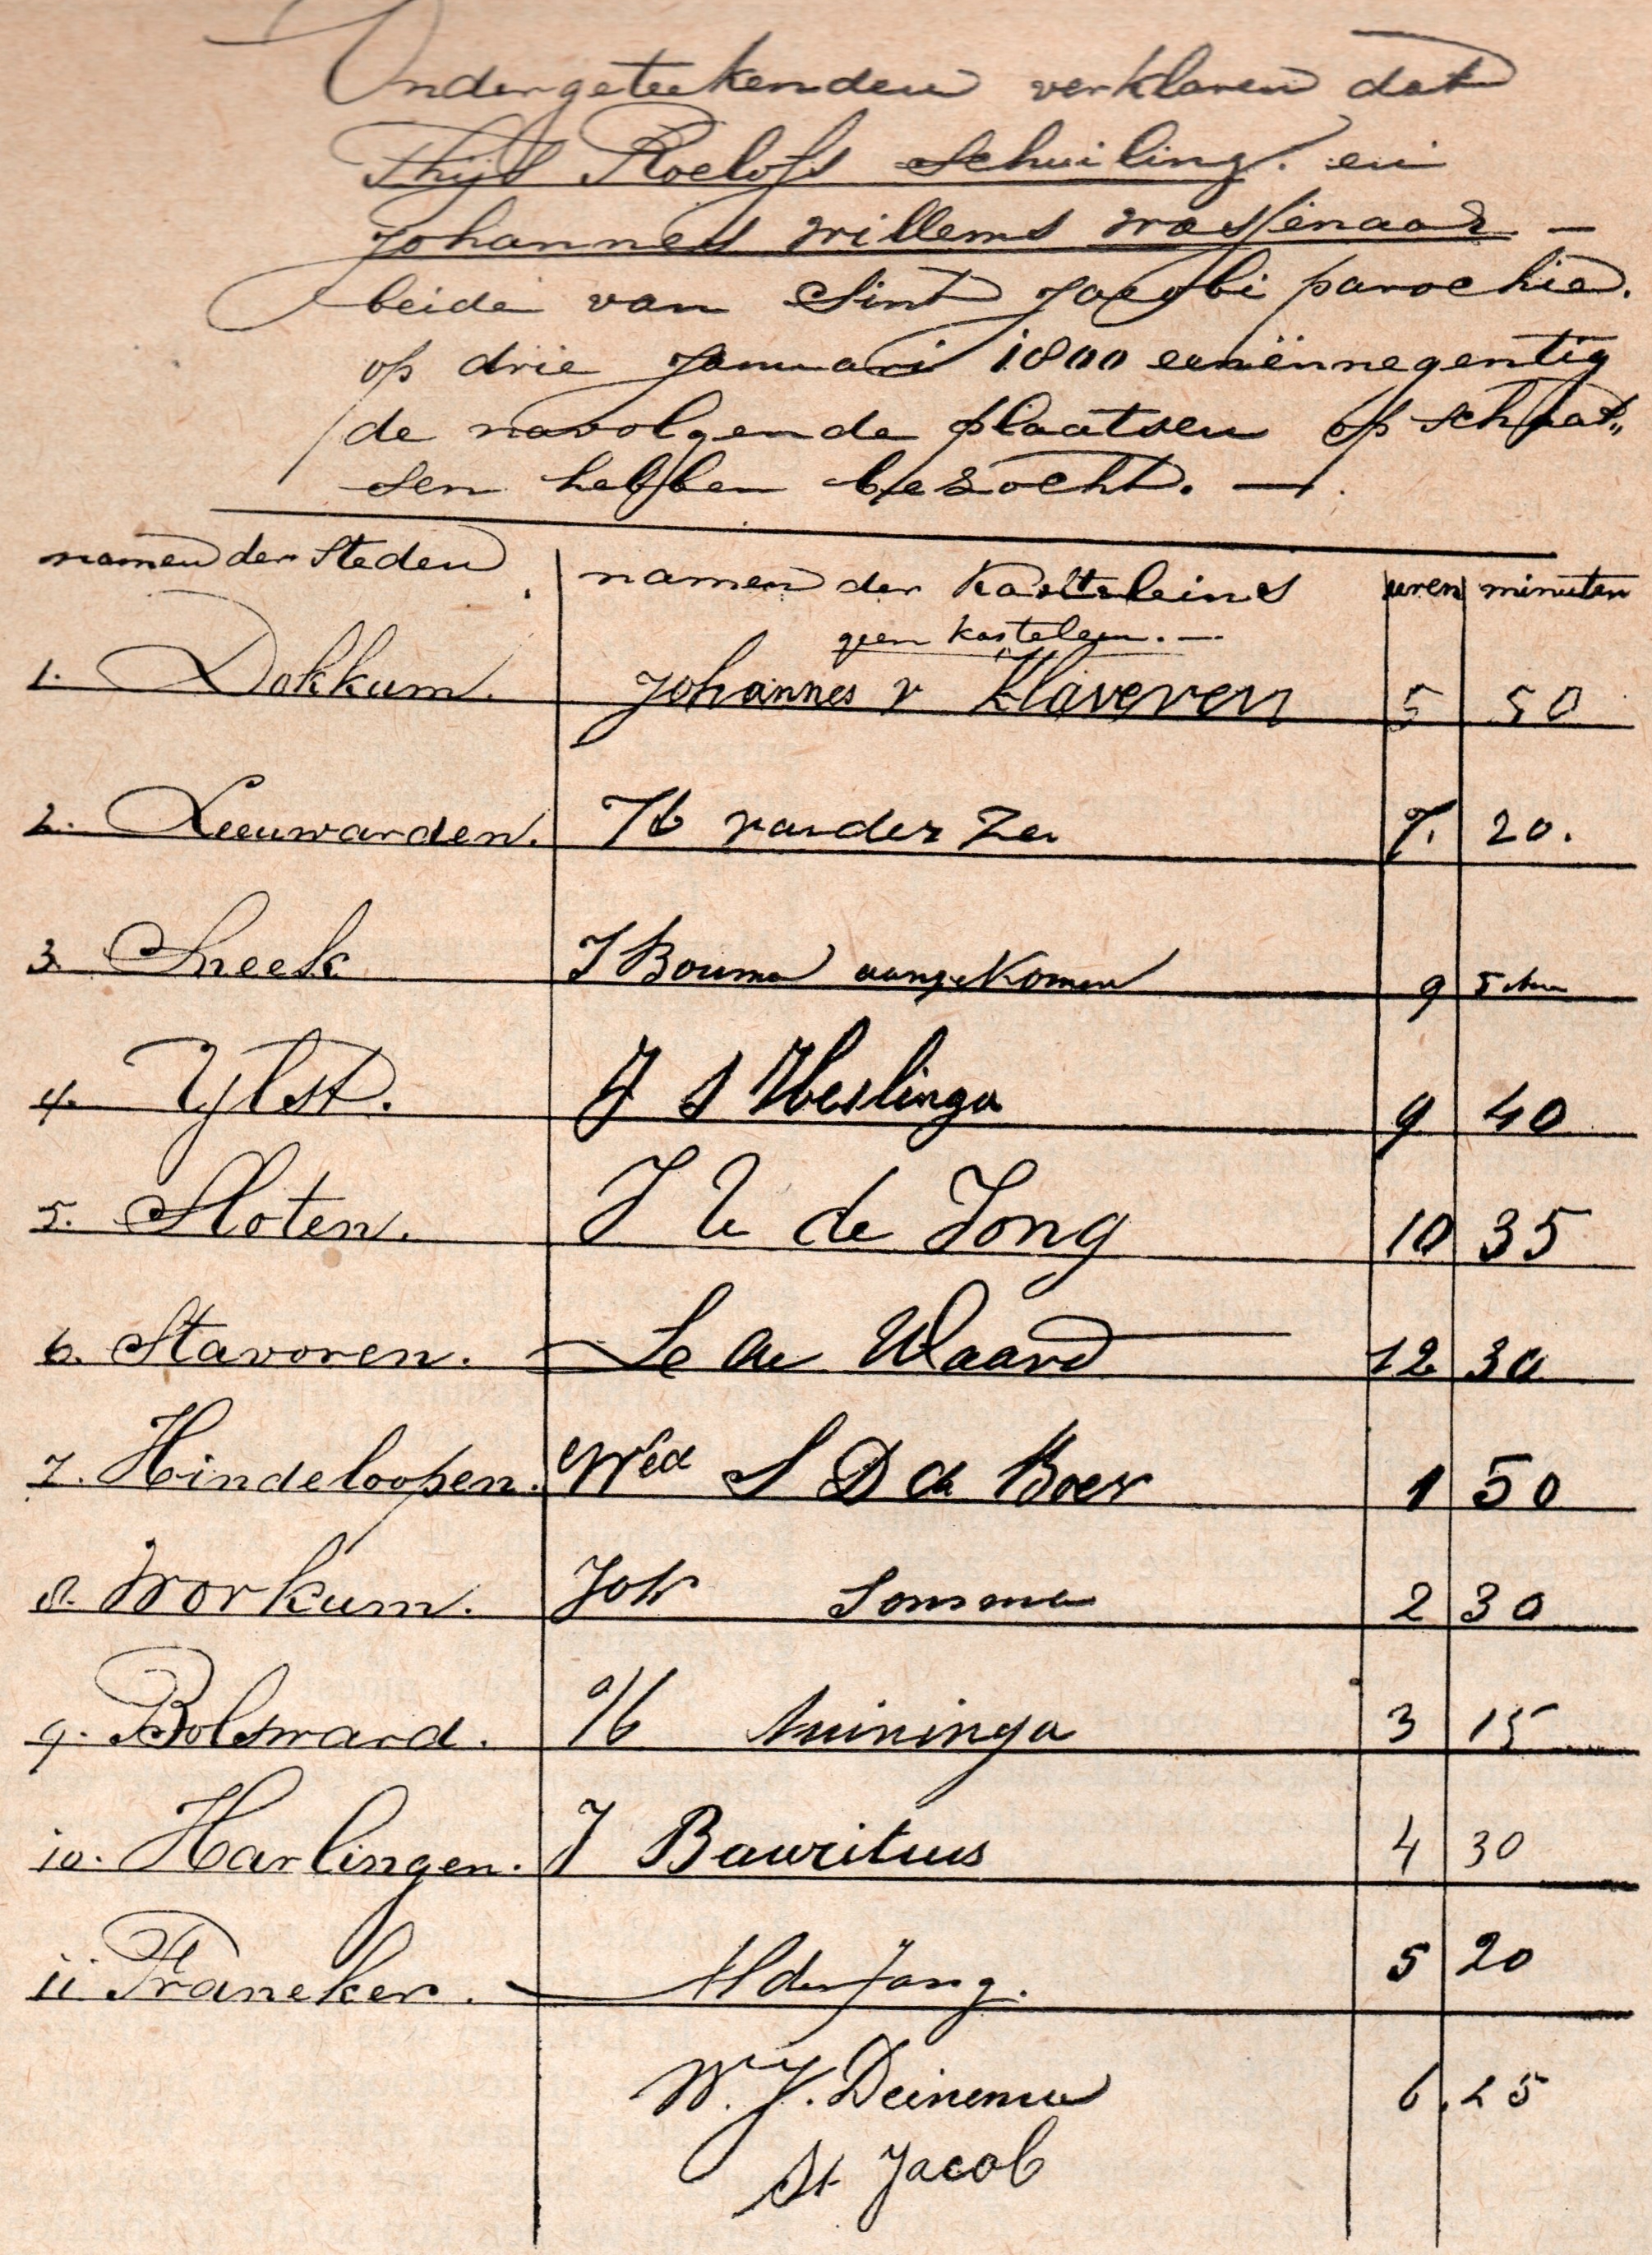 Ondergeteekenden verklaren dat
Thijs Roelofs Schuiling. en
Johannes Willems Wassenaar —
beide van Sint Jacobi parochie.
op drie Januari 1800 eenënnegentig
de navolgende plaatsen op schaat„
sen hebben bezocht. —
namen der Steden. namen der Kasteleins uren minuten
geen kastelein. —
1. Dokkum. Johannes v Klaveren 5 50
2. Leeuwarden. van der Zee 7. 20.
3. Sneek J Bouma aangekomen 9 5
4. Ylst. J S Heslinga 9 40
5. Sloten. J de Jong 10 35
6. Stavoren. de Waard 12 30
7. Hindeloopen. Wed S D de Boer 1 50
8. Workum. Joh 2 30
9. Bolsward. 3 15
10. Harlingen. J Bauritius 4 30
11 Franeker. de Jong. 5 20
W. J. Deinema 6. 25
St Jacob